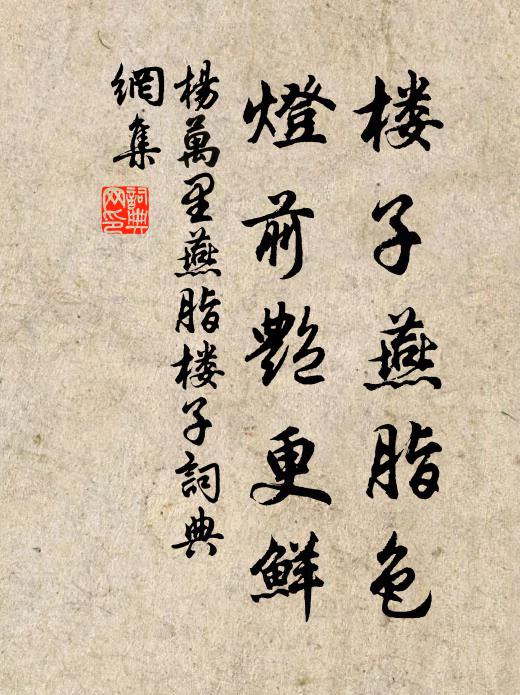 楼子燕脂色
燈前艷更鮮
楊萬里燕脂楼子詞典
網集
詞典网印